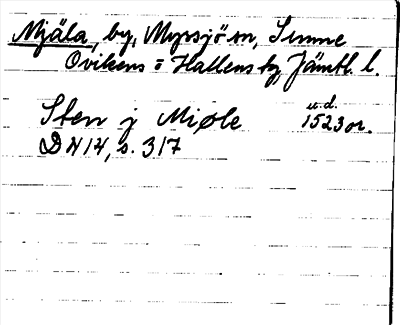 Mjäla, by, Myssjö sn, Sunne
Ovikens o Hallens tg, Jämtl. l.
Sten j Miøle u.d. 1523 or.
DN 14, s. 317